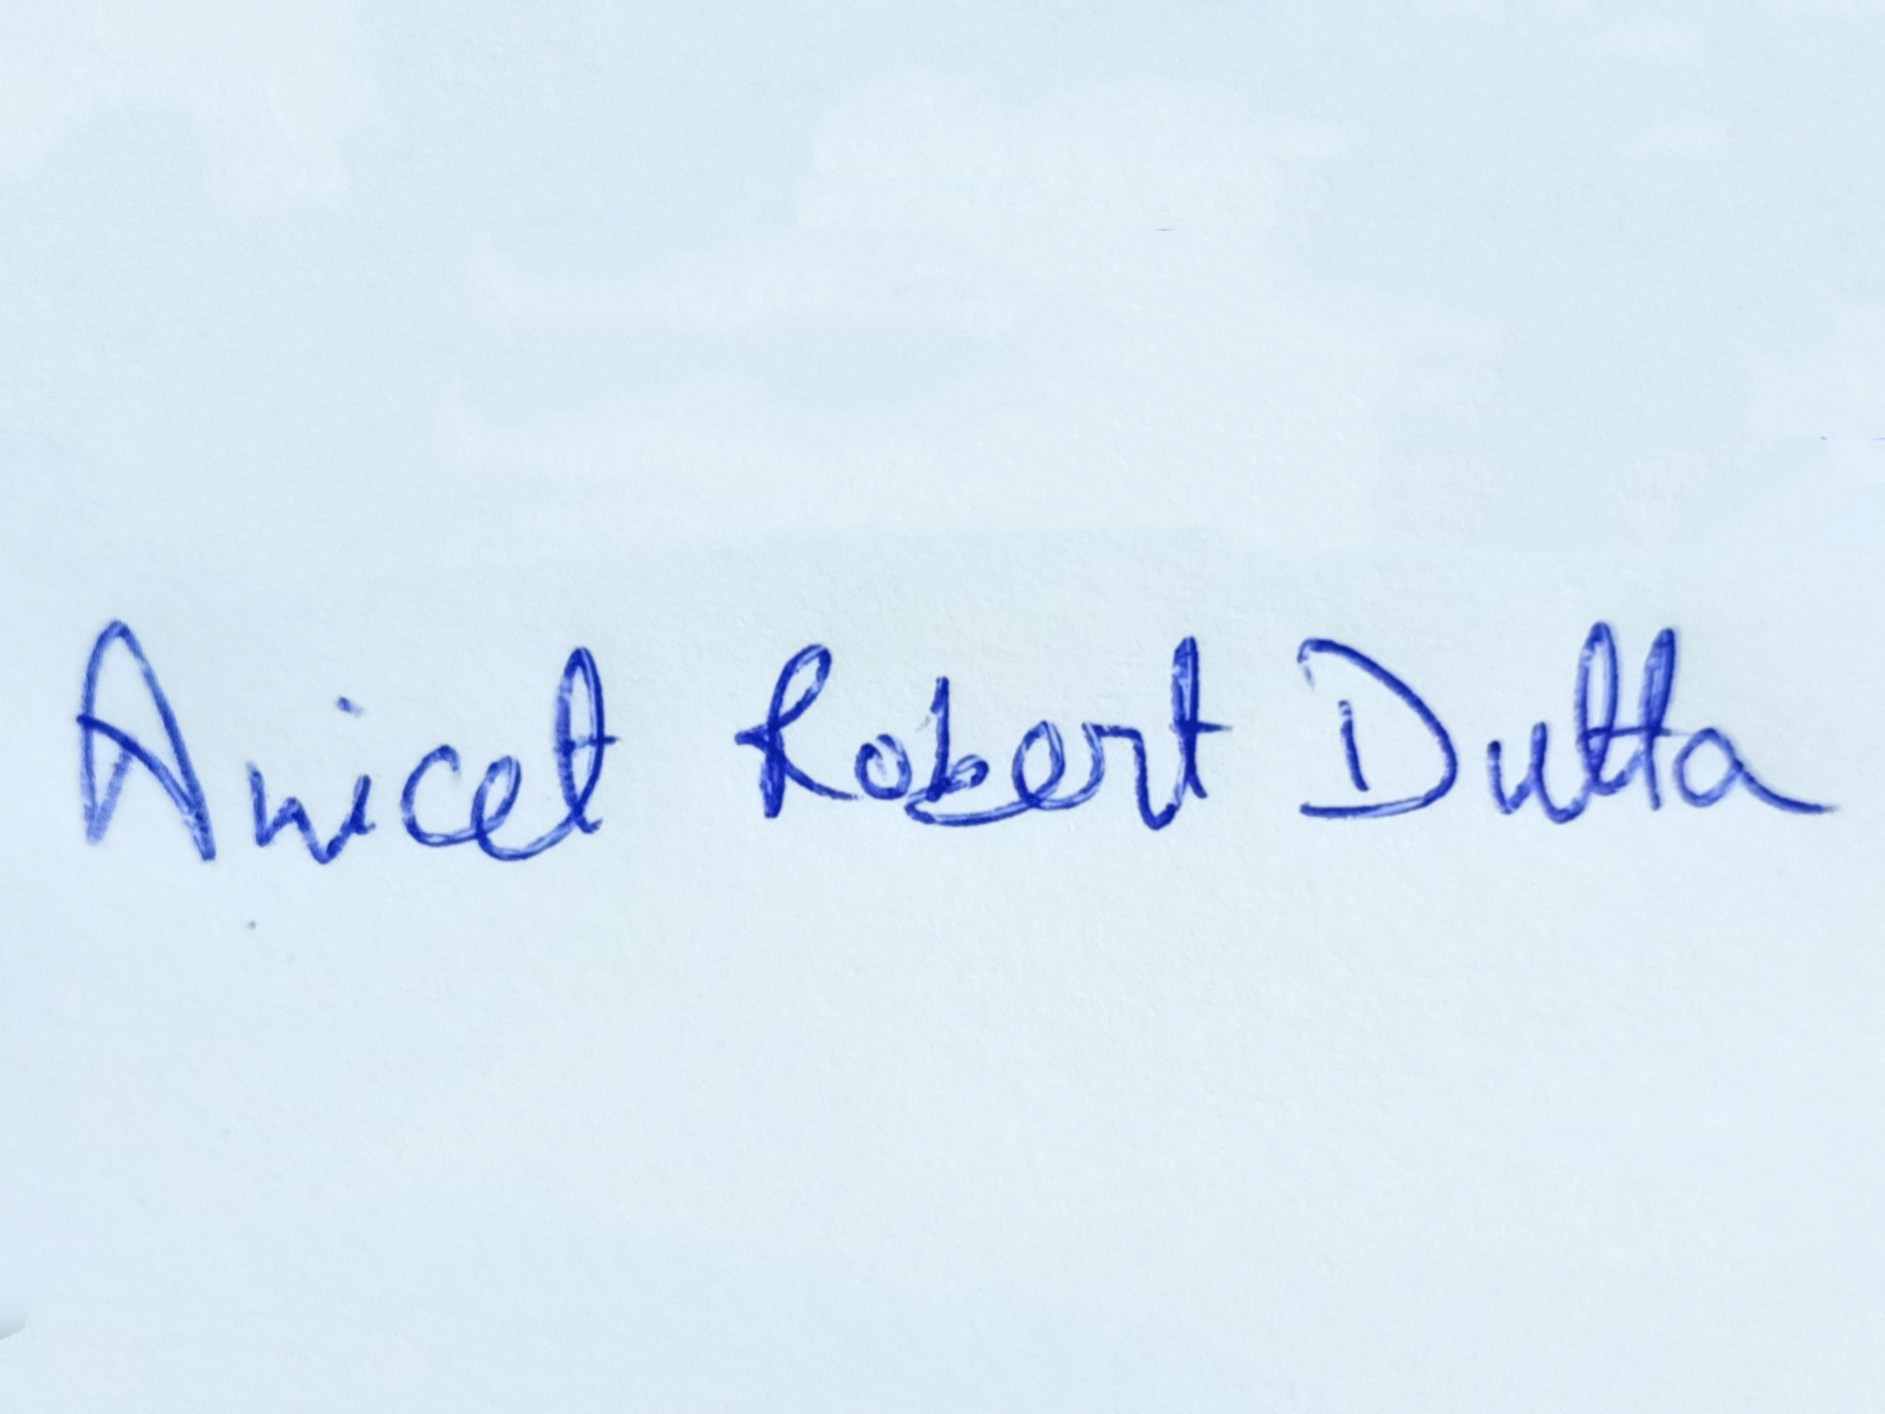 Anicet Robert Dutta